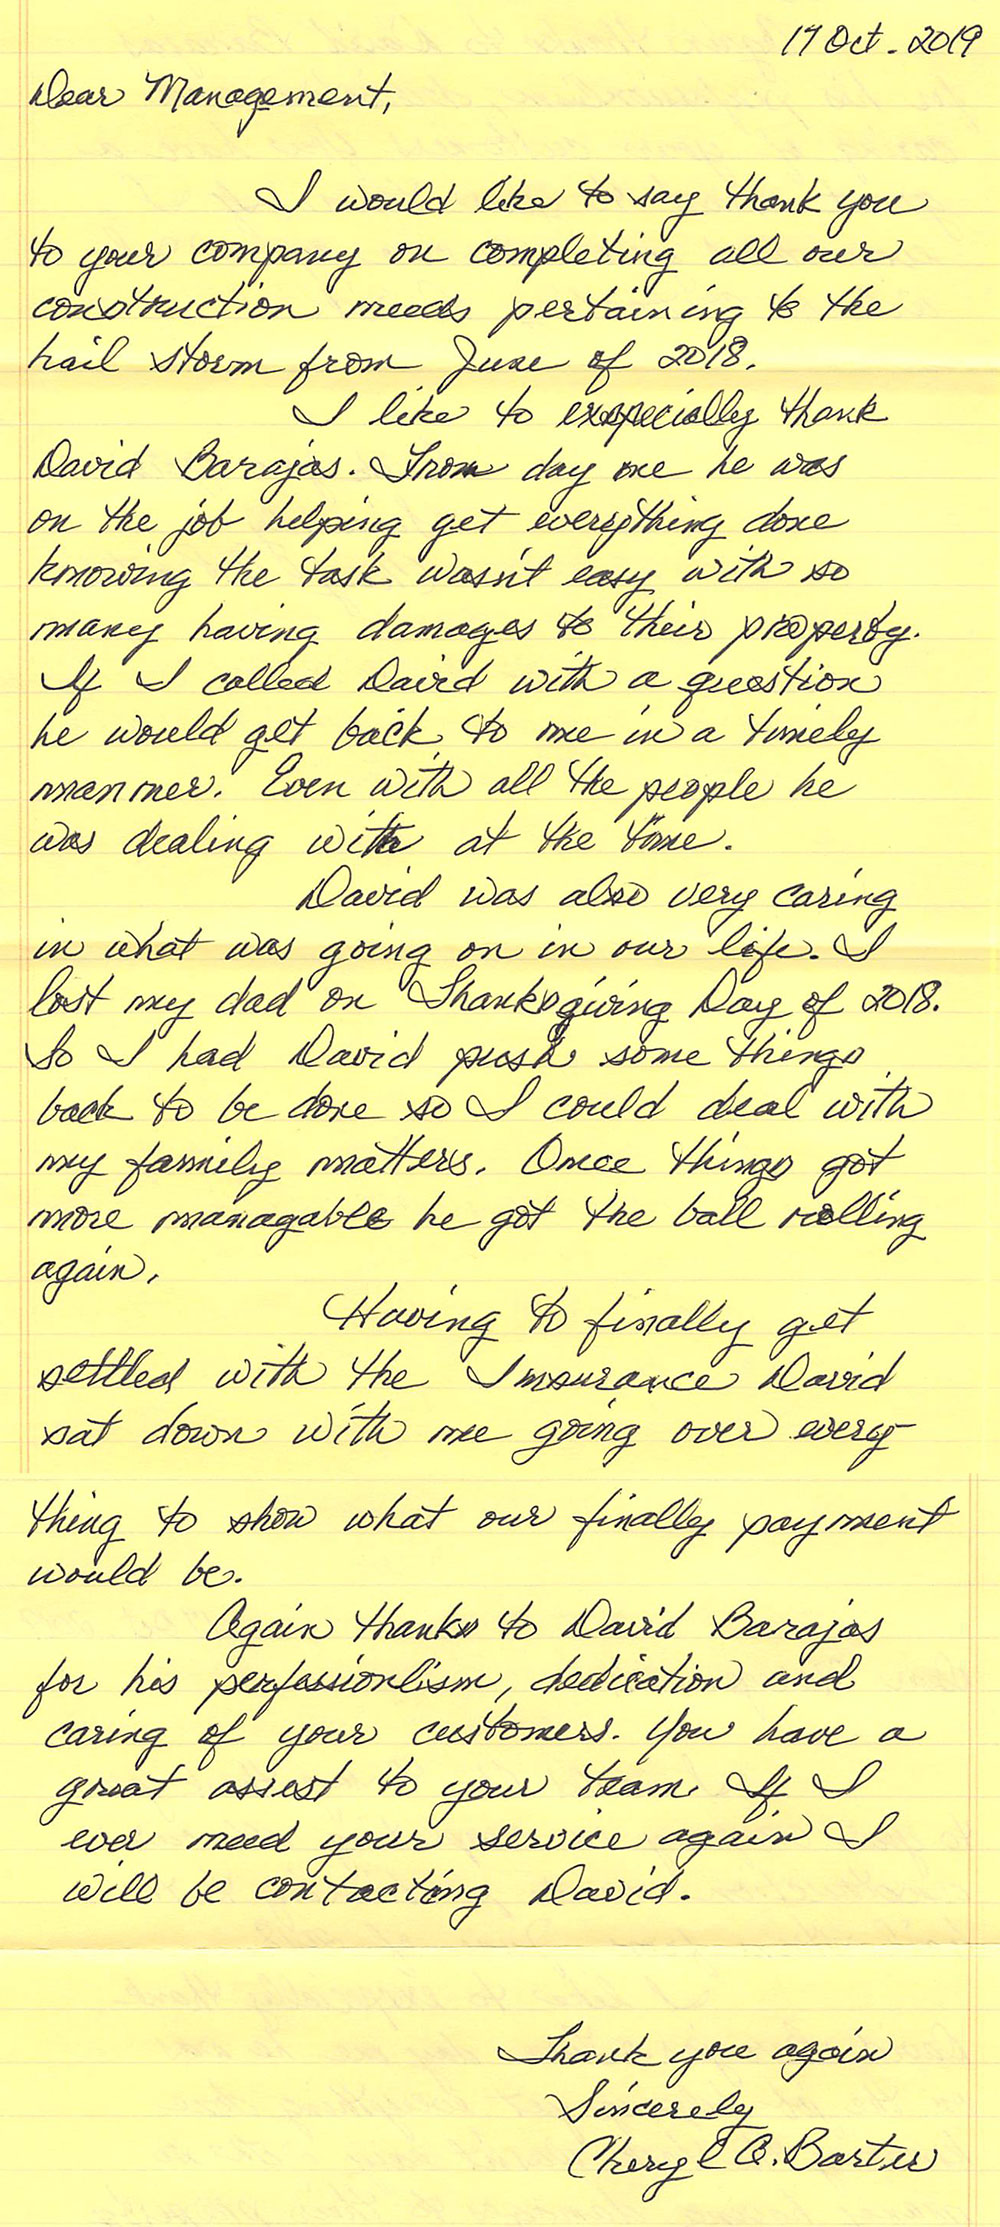 17 Oct. 2019
Dear Management,
I would like to say thank you
to your company on completing all our
construction needs pertaining to the
hail storm from June of 2018.
I like to exspecially thank
David Barajas. From day one he was
on the job helping get everything done
knowing the task wasn't easy with so
many having damages to their property.
If I called David with a question
he would get back to me in a timely
manner. Even with all the people he
was dealing with at the time.
David was also very caring
in what was going on in our life. I
lost my dad on Thanksgiving Day of 2018.
So I had David push some things
back to be done so I could deal with
my family matters. Once things got
more managable he got the ball rolling
again.
Having to finally get
settled with the Insurance David
sat down with me going over every
thing to show what our finally payment
would be.
Again thanks to David Barajas
for his perfessionlism, dedication and
caring of your customers. You have a
great assest to your team. If I
ever need your service again I
will be contacting David.
Thank you again
Sincerely
Cheryl A. Barter